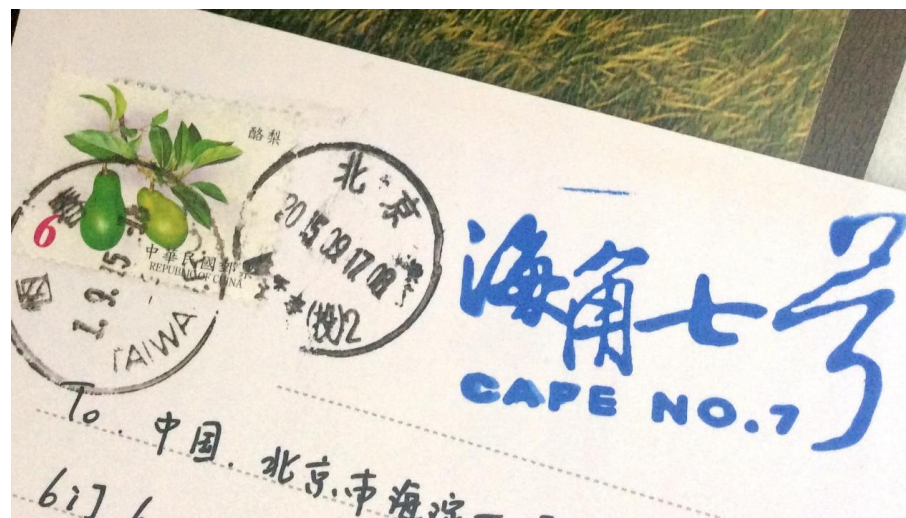 酪梨
6
中華民國郵票
REPUBLIC OF CHINA
1.9.15
TAIWA
北京
2015.09.17.08
(投)2
海角七号
CAPE NO.7
To. 中国. 北京市海淀
6门6